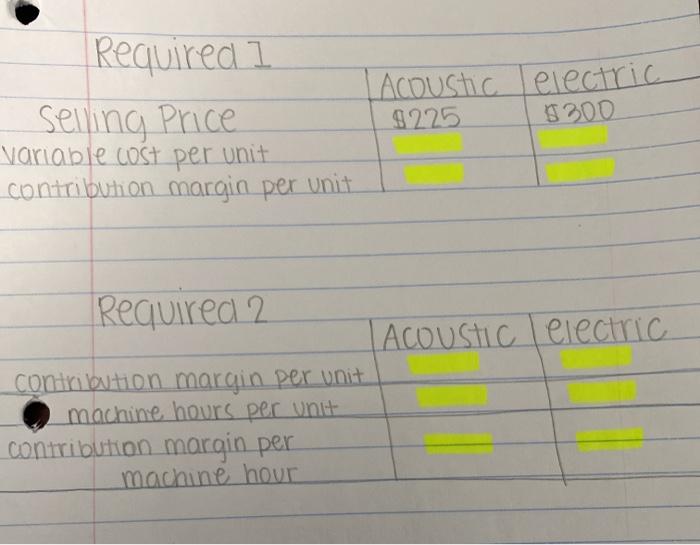 Required 1
Acoustic electric
Selling Price $225 $300
variable cost per unit
contribution margin per unit
Required 2
Acoustic electric
contribution margin per unit
machine hours per unit
contribution margin per
machine hour